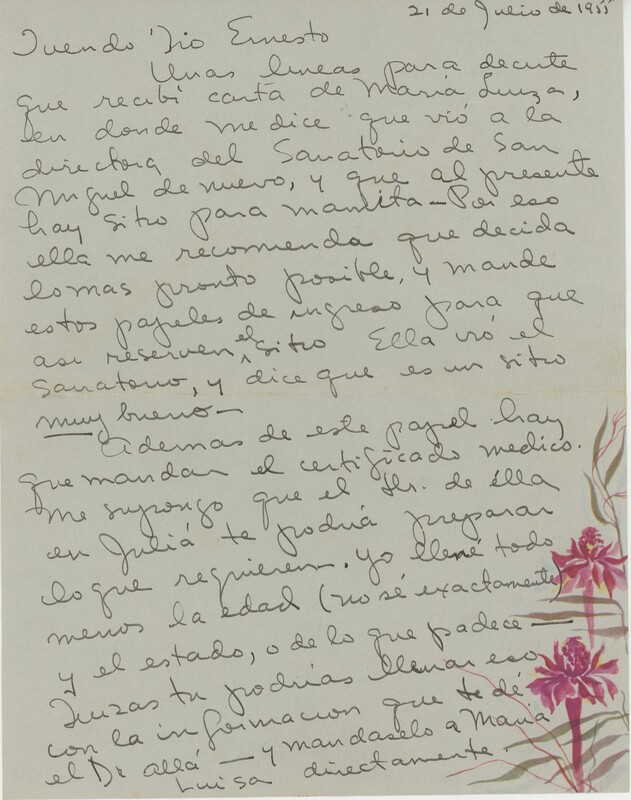 21 de Julio de 1955
Querido Tio Ernesto
Unas lineas para decirte
que recibi carta de María Luiza,
en donde me dice que vió a la
directora del Sanatorio de San
Miguel de nuevo, y que al presente
hay sitio para mamita - Por eso
ella me recomenda que decida
lo mas pronto posible, y mande
estos papeles de ingreso para que
asi reserven el sitio Ella vió el
Sanatorio, y dice que es un sitio
muy bueno -
Ademas de este papel hay
que mandar el certificado medico.
Me supongo que el Dr. de élla
en Juliá te podrá preparar
lo que requieren. Yo llené todo
menos la edad (no sé exactamente)
y el estado, o de lo que padece -
Quizas tu podrías llenar eso
con la informacion que te dé
el Dr allá - y mandaselo a Maria
Luisa directamente -